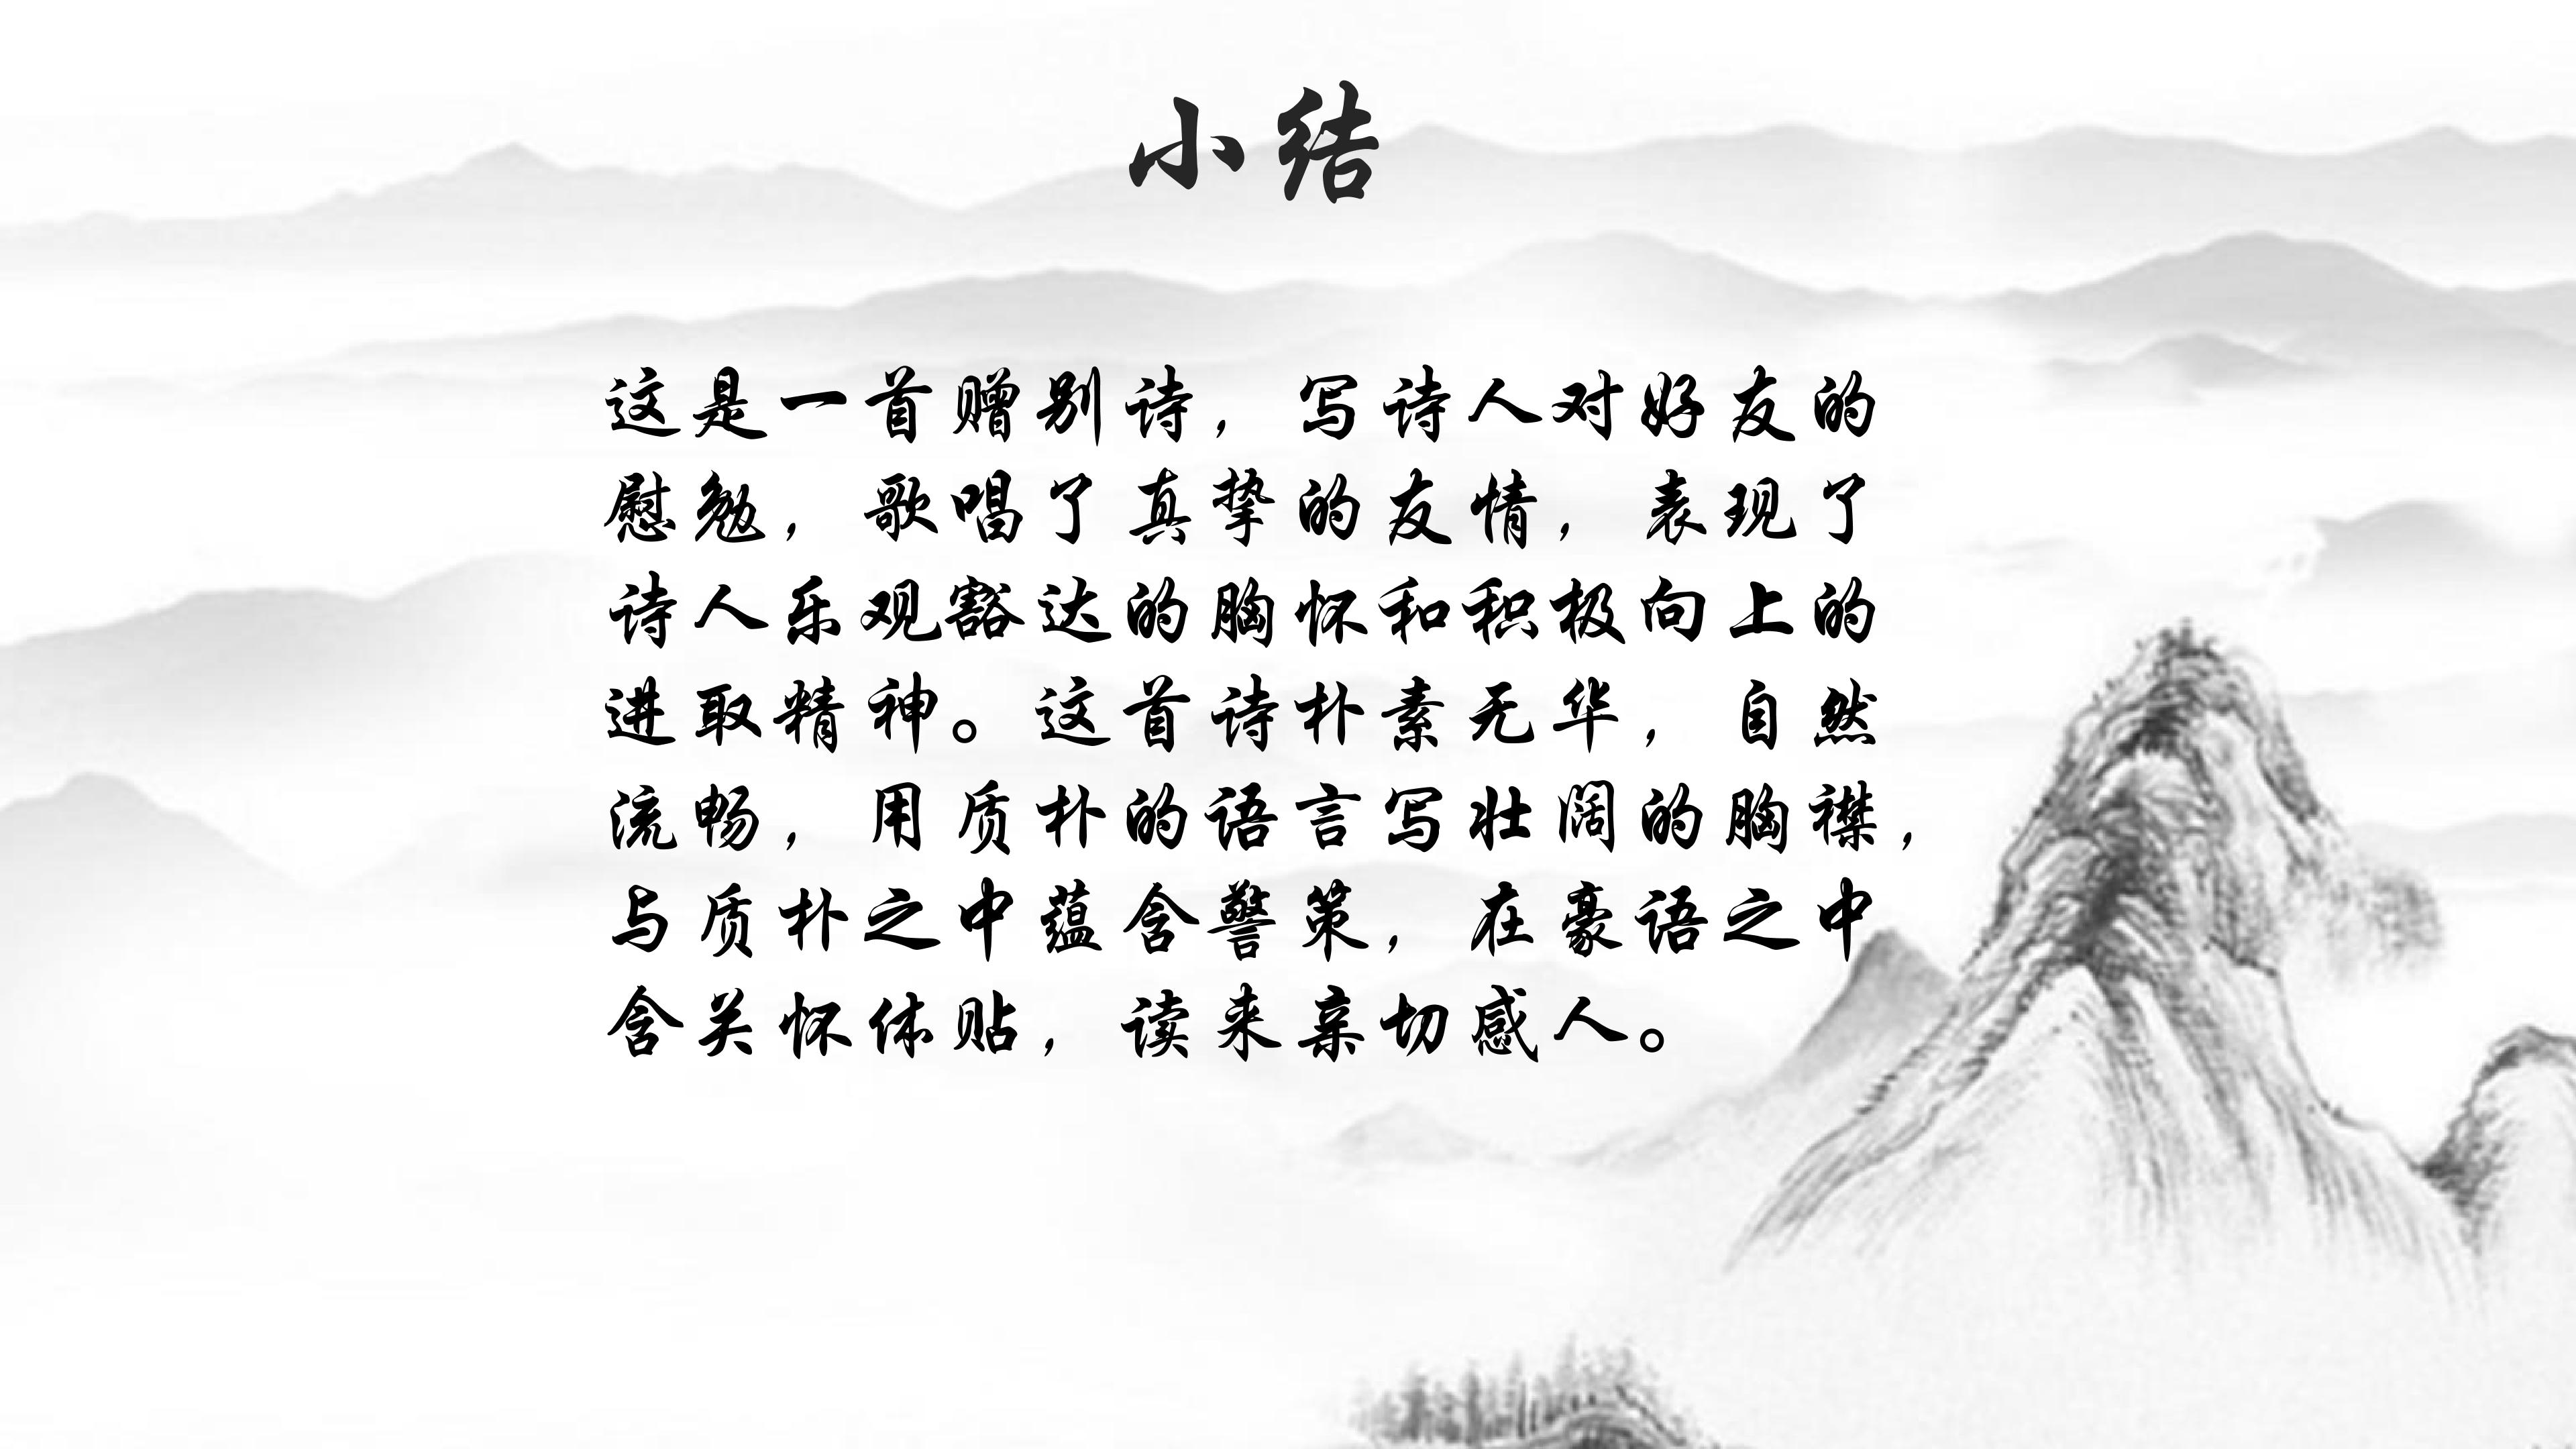 小结
这是一首赠别诗，写诗人对好友的
慰勉，歌唱了真挚的友情，表现了
诗人乐观豁达的胸怀和积极向上的
进取精神。这首诗朴素无华，自然
流畅，用质朴的语言写壮阔的胸襟，
与质朴之中蕴含警策，在豪语之中
含关怀体贴，读来亲切感人。